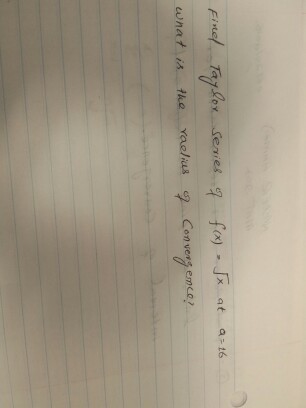 Find Taylor Series of f(x) = √x at a=16
what is the radius of Convergence?